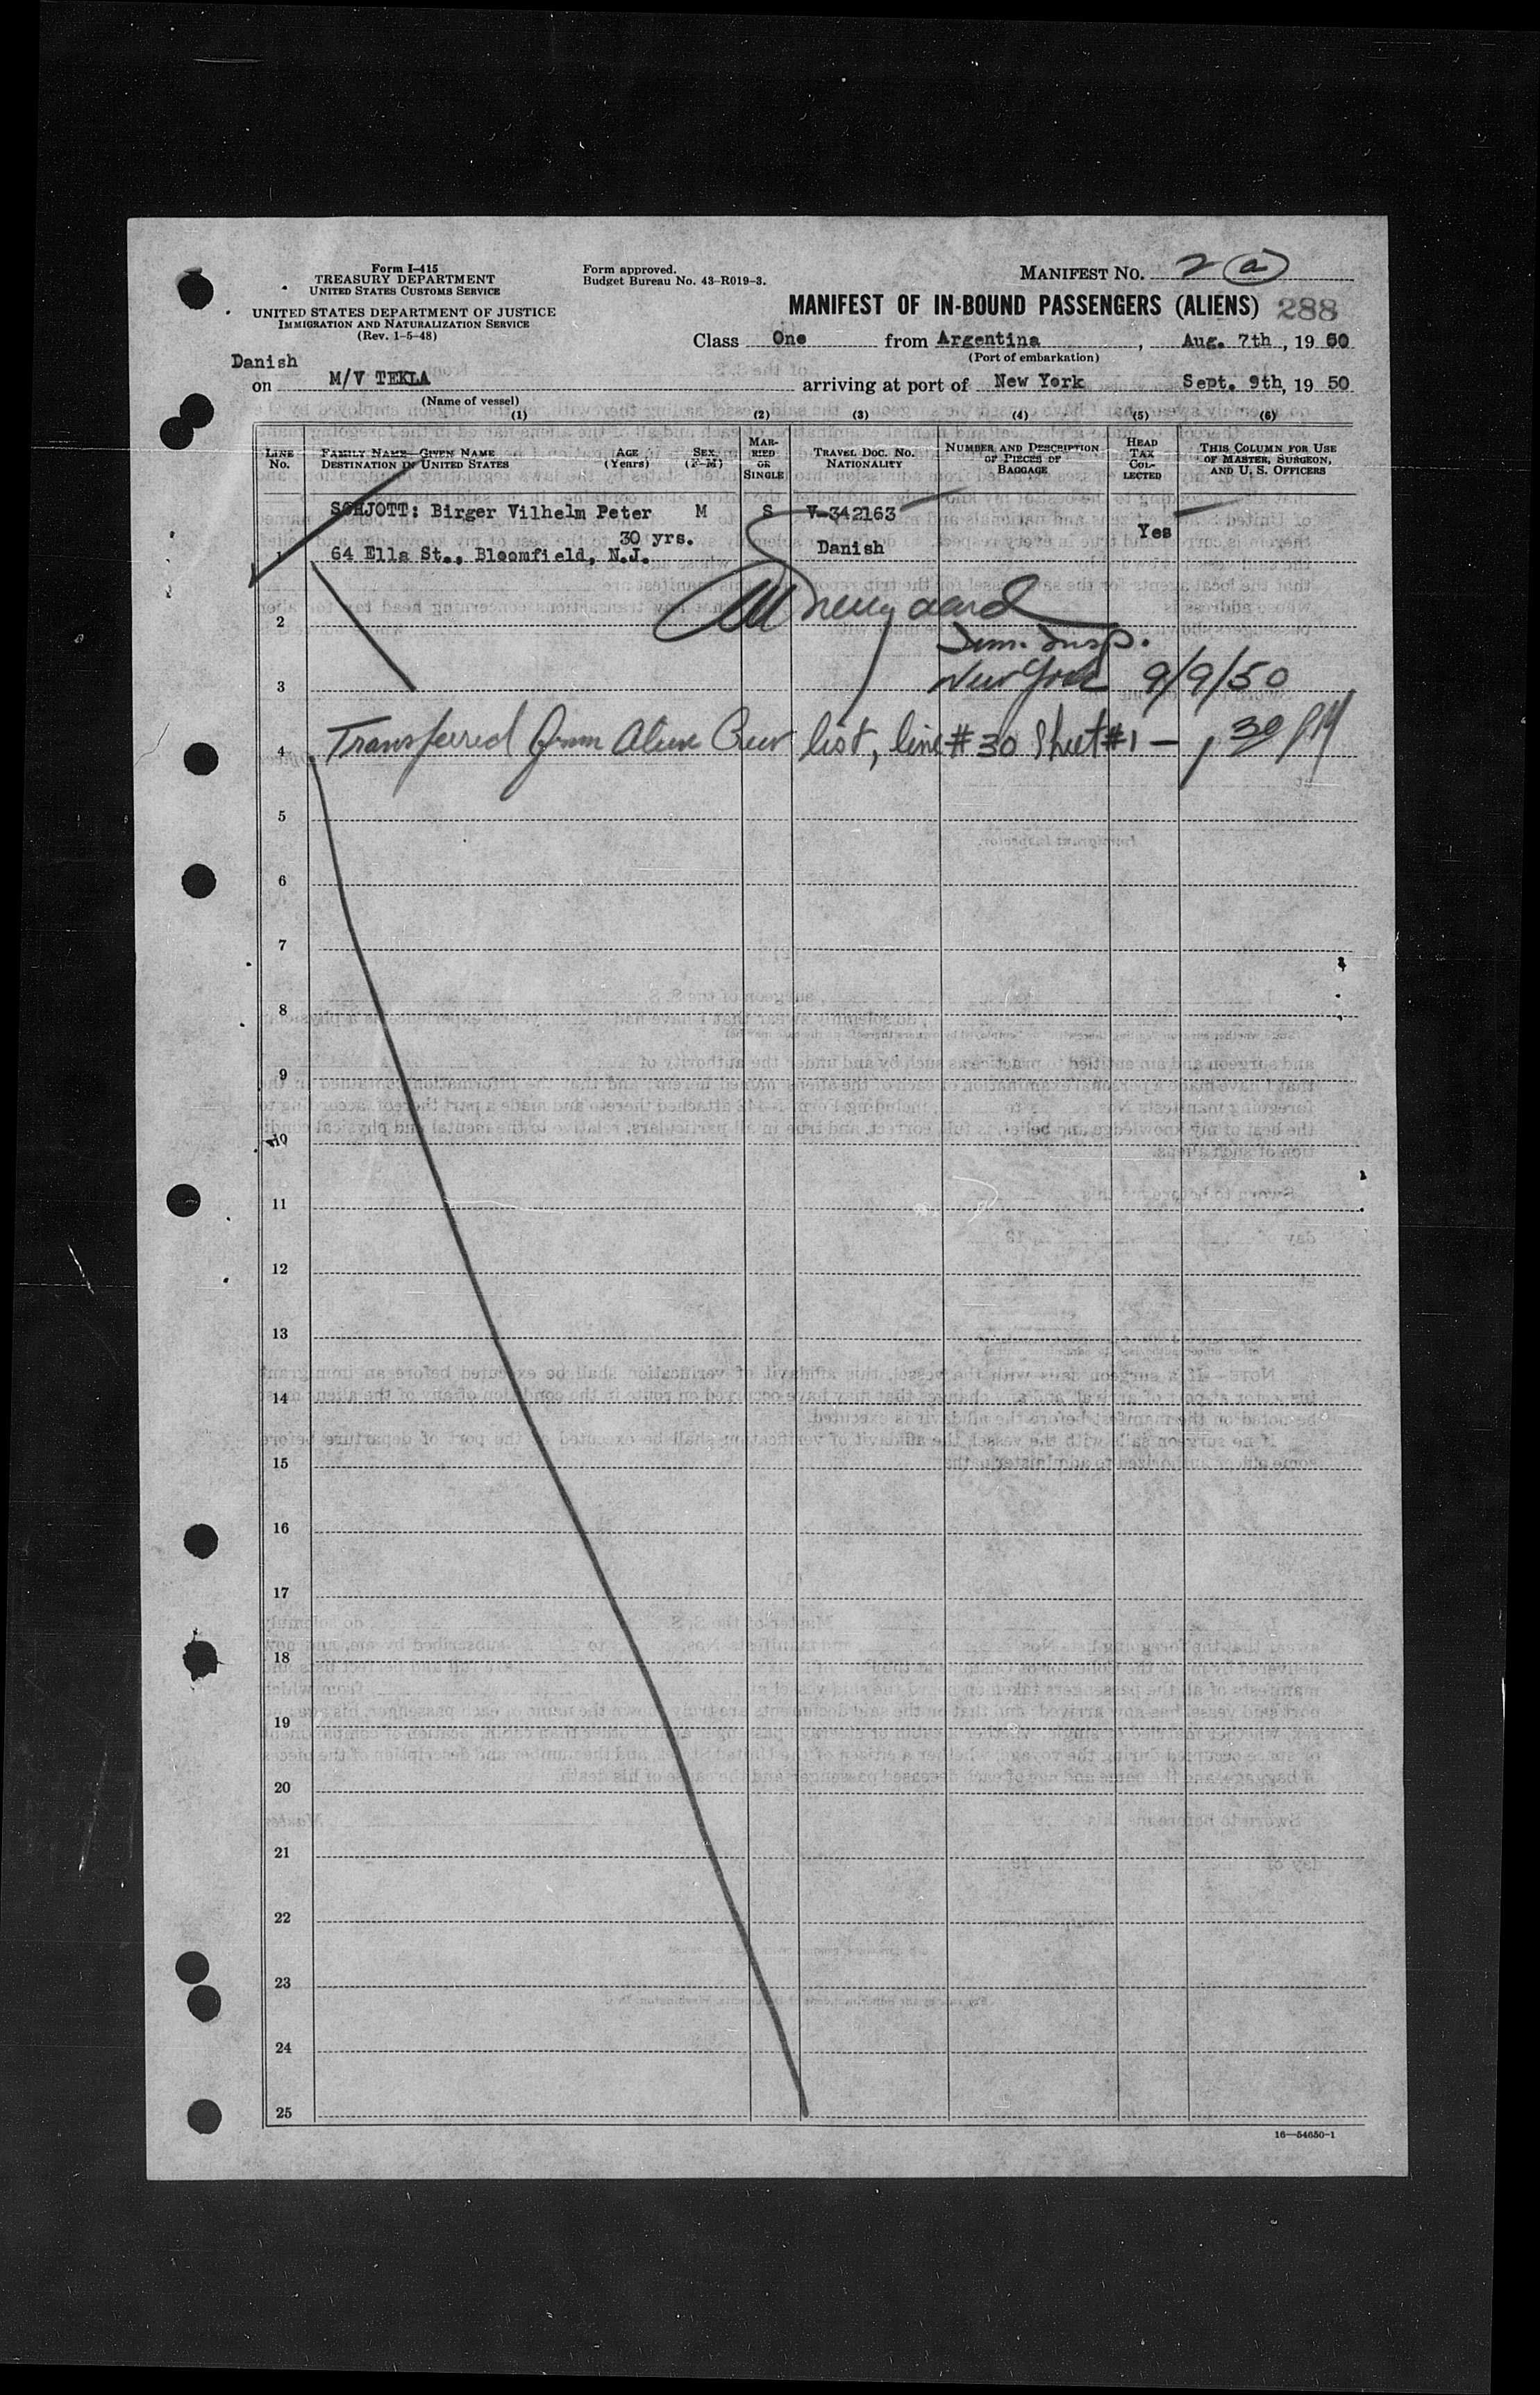 Form I-415
TREASURY DEPARTMENT
UNITED STATES CUSTOMS SERVICE
UNITED STATES DEPARTMENT OF JUSTICE
IMMIGRATION AND NATURALIZATION SERVICE
(Rev. 1-5-48)
Form approved.
Budget Bureau No. 43-R019-3.
MANIFEST NO. 2 (a)
MANIFEST OF IN-BOUND PASSENGERS (ALIENS) 288
Class One from Argentina, Aug. 7th, 19 50
(Port of embarkation)
Danish
on M/V TEKLA arriving at port of New York Sept. 9th, 19 50
(Name of vessel)
(1) (2) (3) (4) (5) (6)
LINE No. FAMILY NAME—GIVEN NAME DESTINATION IN UNITED STATES AGE (Years) SEX (F-M) MARRIED OR SINGLE TRAVEL DOC. NO. NATIONALITY NUMBER AND DESCRIPTION OF PIECES OF BAGGAGE HEAD TAX COLLECTED THIS COLUMN FOR USE OF MASTER, SURGEON, AND U. S. OFFICERS
SCHJOTT: Birger Vilhelm Peter M S V-342163
30 yrs. Yes
1 64 Ella St., Bloomfield, N.J. Danish
2
Imm. Insp.
3 New York 9/9/50
4 Transferred from Alien Crew list, line #30 Sheet #1 — 1 30 PM
5
6
7
8
9
10
11
12
13
14
15
16
17
18
19
20
21
22
23
24
25
16—54650-1